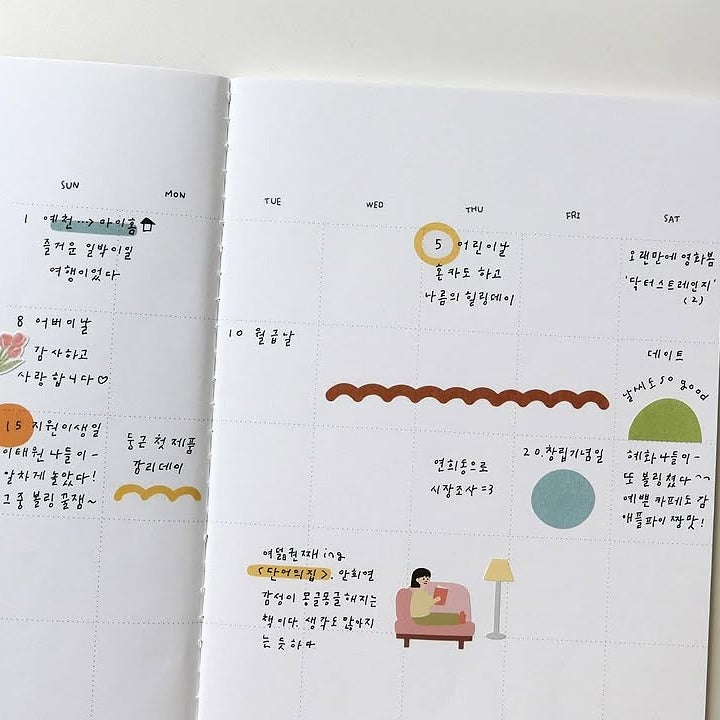 SUN
MON
TUE
WED
THU
FRI
SAT
1 예천 ···> 마이홈
즐거운 일박이일
여행이었다
5 어린이날
혼카도 하고
나름의 힐링데이
오랜만에 영화봄
'닥터스트레인지'
(2)
8 어버이날
감사하고
사랑합니다♡
10 월급날
데이트
날씨도 so good
15 지원이생일
이태원 나들이-
알차게 놀았다!
그중 볼링 꿀잼~
둥근 첫 제품
감리데이
연희동으로
시장조사 =3
20. 창립기념일
혜화나들이-
또 볼링쳤다 ^^
예쁜카페도 감
애플파이 짱맛!
여덟권째 ing
<단어의집>. 안희연
감성이 몽글몽글해지는
책이다. 생각도 많아지
는 듯하다